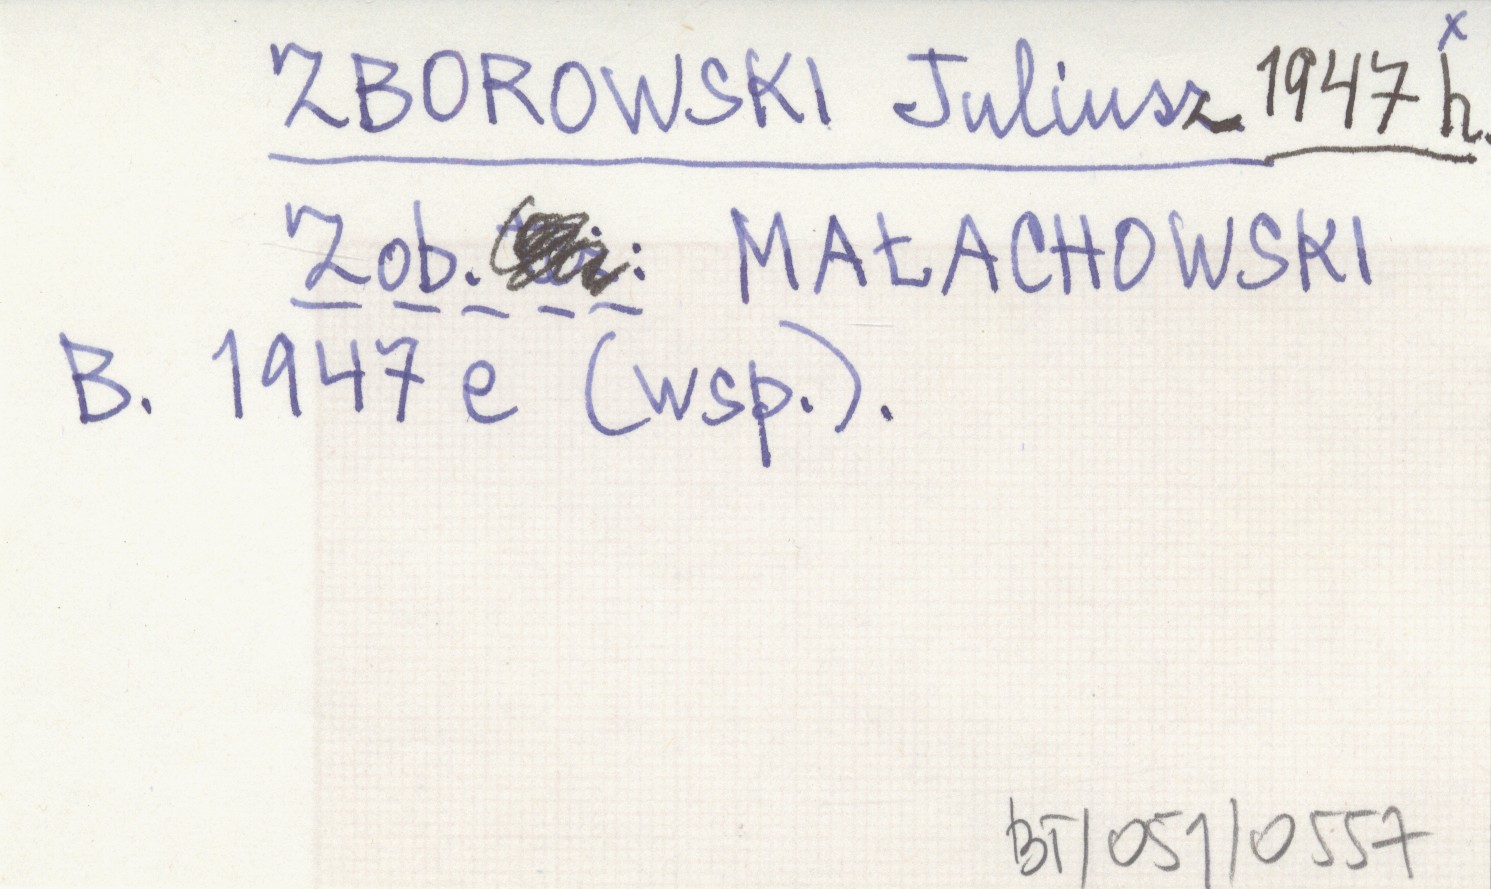 ZBOROWSKI Juliusz 1947 h. x
Zob. : MAŁACHOWSKI
B. 1947 e (wsp.).
BT/051/0557